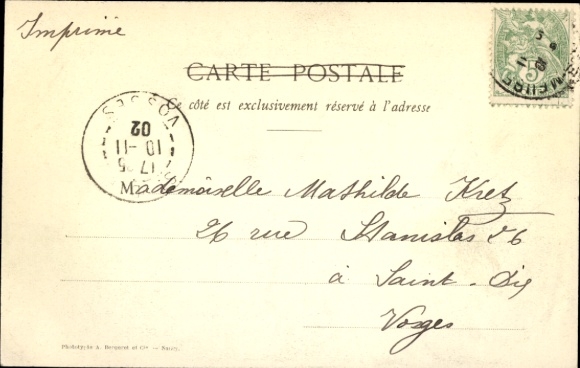 Imprimé
CARTE POSTALE
Ce côté est exclusivement réservé à l'adresse
VOSGES
17 35
10-11
02
5
MEURT
Mademoiselle Mathilde Kretz
26 rue Stanislas 26
à Saint-Dié
Vosges
Phototypie A. Bergeret et Cie — Nancy